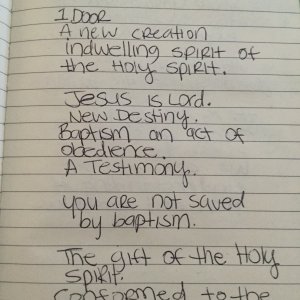 1 DOOR
A new creation
indwelling spirit of
the Holy Spirit.
Jesus is Lord.
New Destiny.
Baptism an act of
obedience.
A Testimony.
you are not saved
by baptism.
The gift of the Holy
Spirit.
Conformed to the